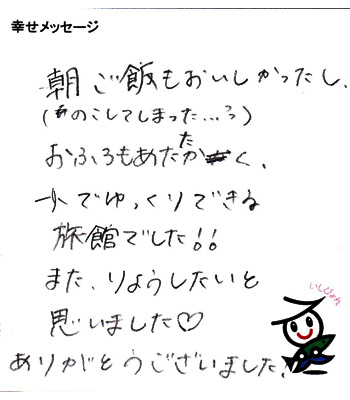 幸せメッセージ
朝ご飯もおいしかったし、
(のこしてしまった…)
おふろもあたたかく、
でゆっくりできる
旅館でした!!
また、りようしたいと
思いました♡
ありがとうございました!